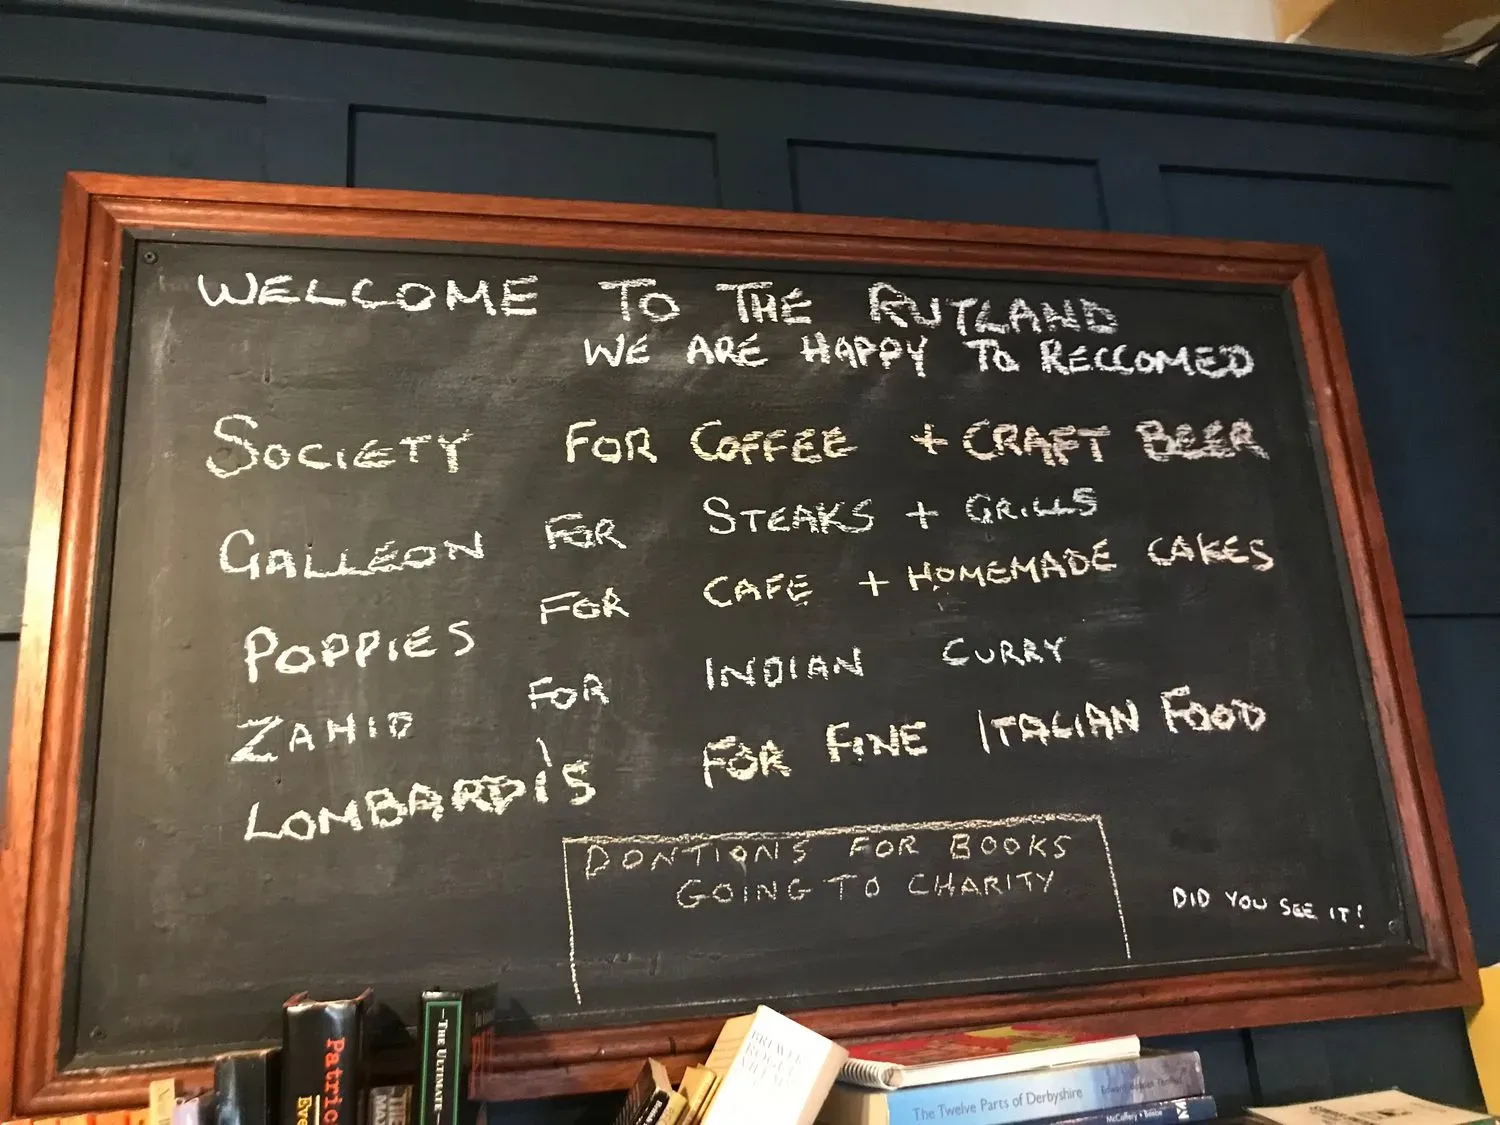 WELCOME TO THE RUTLAND
WE ARE HAPPY TO RECCOMED
SOCIETY FOR COFFEE + CRAFT BEER
GALLEON FOR STEAKS + GRILLS
POPPIES FOR CAFE + HOMEMADE CAKES
ZAHID FOR INDIAN CURRY
LOMBARDI'S FOR FINE ITALIAN FOOD
DONTIONS FOR BOOKS
GOING TO CHARITY
DID YOU SEE IT!
Patric
Eve
—THE ULTIMATE—
BREWER
ROGUE
VILLAI
The Twelve Parts of Derbyshire
McCaffery + Benbe